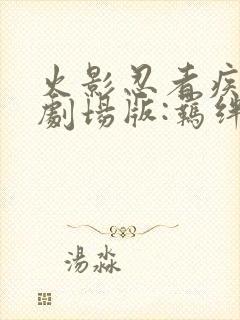 火影忍者疾
劇場版:羈絆
湯淼